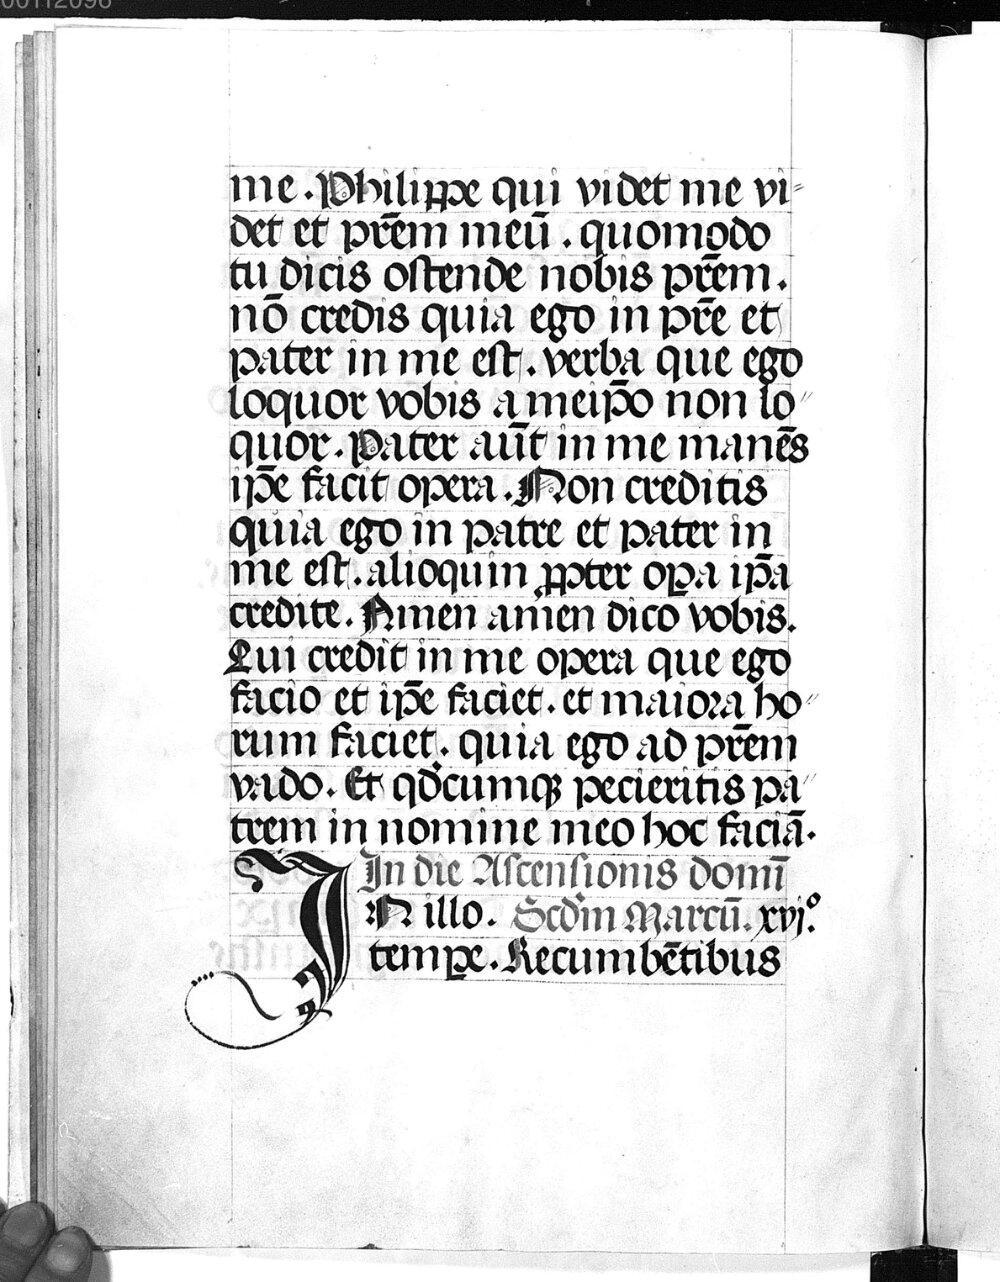 00112096
me . Philippe qui videt me vi⸗
det et pr̃em meũ . quomodo
tu dicis ostende nobis pr̃em .
nõ credis quia ego in pr̃e et
pater in me est . verba que ego
loquor vobis a meip̃o non lo⸗
quor . Pater aut̃ in me manẽs
ip̃e facit opera . Non creditis
quia ego in patre et pater in
me est . alioquin ꝓpter oꝑa ip̃a
credite . Amen amen dico vobis .
Qui credit in me opera que ego
facio et ip̃e faciet . et maiora ho⸗
rum faciet . quia ego ad pr̃em
vado . Et qd̃cumqꝫ pecieritis pa⸗
trem in nomine meo hoc faciã .
In die Ascensionis domĩ
IN illo . Scd̃m Marcũ . xvj.º
tempꝑe . Recumbẽtibus